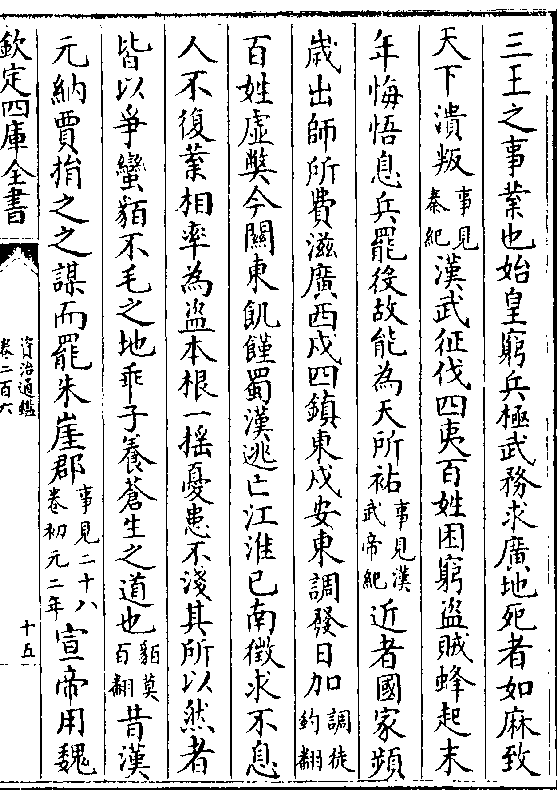 三王之事業也始皇窮兵極武務求廣地死者如麻致
天下潰叛事見秦紀漢武征伐四夷百姓困窮盗賊蜂起末
年悔悟息兵罷役故能為天所祐事見漢武帝紀近者國家頻
歲出師所費滋廣西戍四鎮東戍安東調發日加調徒釣翻
百姓虛弊今關東飢饉蜀漢逃亡江淮已南徵求不息
人不復業相率為盗本根一揺憂患不淺其所以然者
皆以爭蠻貊不毛之地乖子養蒼生之道也貊莫百翻昔漢
元納賈捐之之謀而罷朱崖郡事見二十八卷初元二年宣帝用魏
欽定四庫全書
資治通鑑
卷二百六
十五